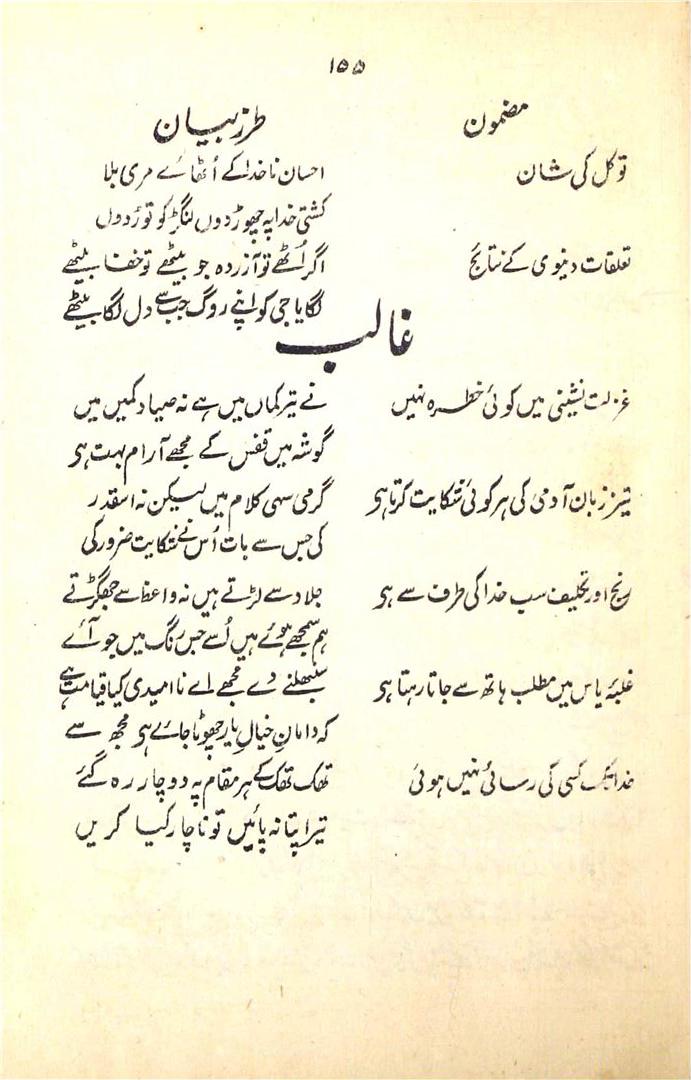 ۱۵۵
مضمون طرز بیان
توکل کی شان احسان ناخدا کے اُٹھائے مری بلا
کشتی خدا پہ چھوڑ دوں لنگر کو توڑ دوں
تعلقات دنیوی کے نتائج اگر اُٹھے تو آزردہ جو بیٹھے تو خفا بیٹھے
لگایا جی کو اپنے روگ جب سے دل لگا بیٹھے
غالب
عزلت نشینی میں کوئی خطرہ نہیں نے تیر کماں میں ہے نہ صیاد کمیں میں
گوشہ میں قفس کے مجھے آرام بہت ہی
تیز زبان آدمی کی ہر کوئی شکایت کرتا ہی گرمی سہی کلام میں لیکن نہ اسقدر
کی جس سے بات اُس نے شکایت ضرور کی
رنج اور تکلیف سب خدا کی طرف سے ہی جلاد سے لڑتے ہیں نہ واعظ سے جھگڑتے
ہم سمجھے ہوئے ہیں اُسے جس رنگ میں جو آئے
غلبۂ یاس میں مطلب ہاتھ سے جاتا رہتا ہی سنبھلنے دے مجھے اے نا امیدی کیا قیامت ہے
کہ دامانِ خیالِ یار چھوٹا جائے ہی مجھ سے
خدا تک کسی کی رسائی نہیں ہوئی تھک تھک کے ہر مقام پہ دو چار رہ گئے
تیرا پتا نہ پائیں تو ناچار کیا کریں